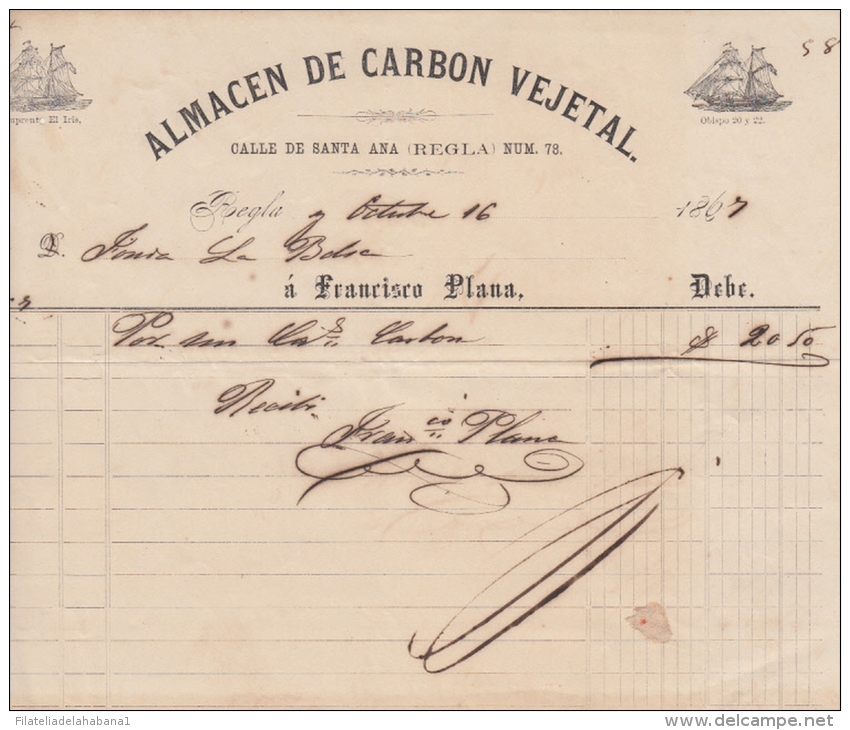 58
ALMACEN DE CARBON VEJETAL.
mprenta El Iris,
Obispo 20 y 22.
CALLE DE SANTA ANA (REGLA) NUM. 78.
Regla y Octubre 16 1867
D. La Bolsa
á Francisco Plana, Debe.
Por un Carbon $ 20 50
Recibi
Franco Plana
Filateliadelahabana1
delcampe.net